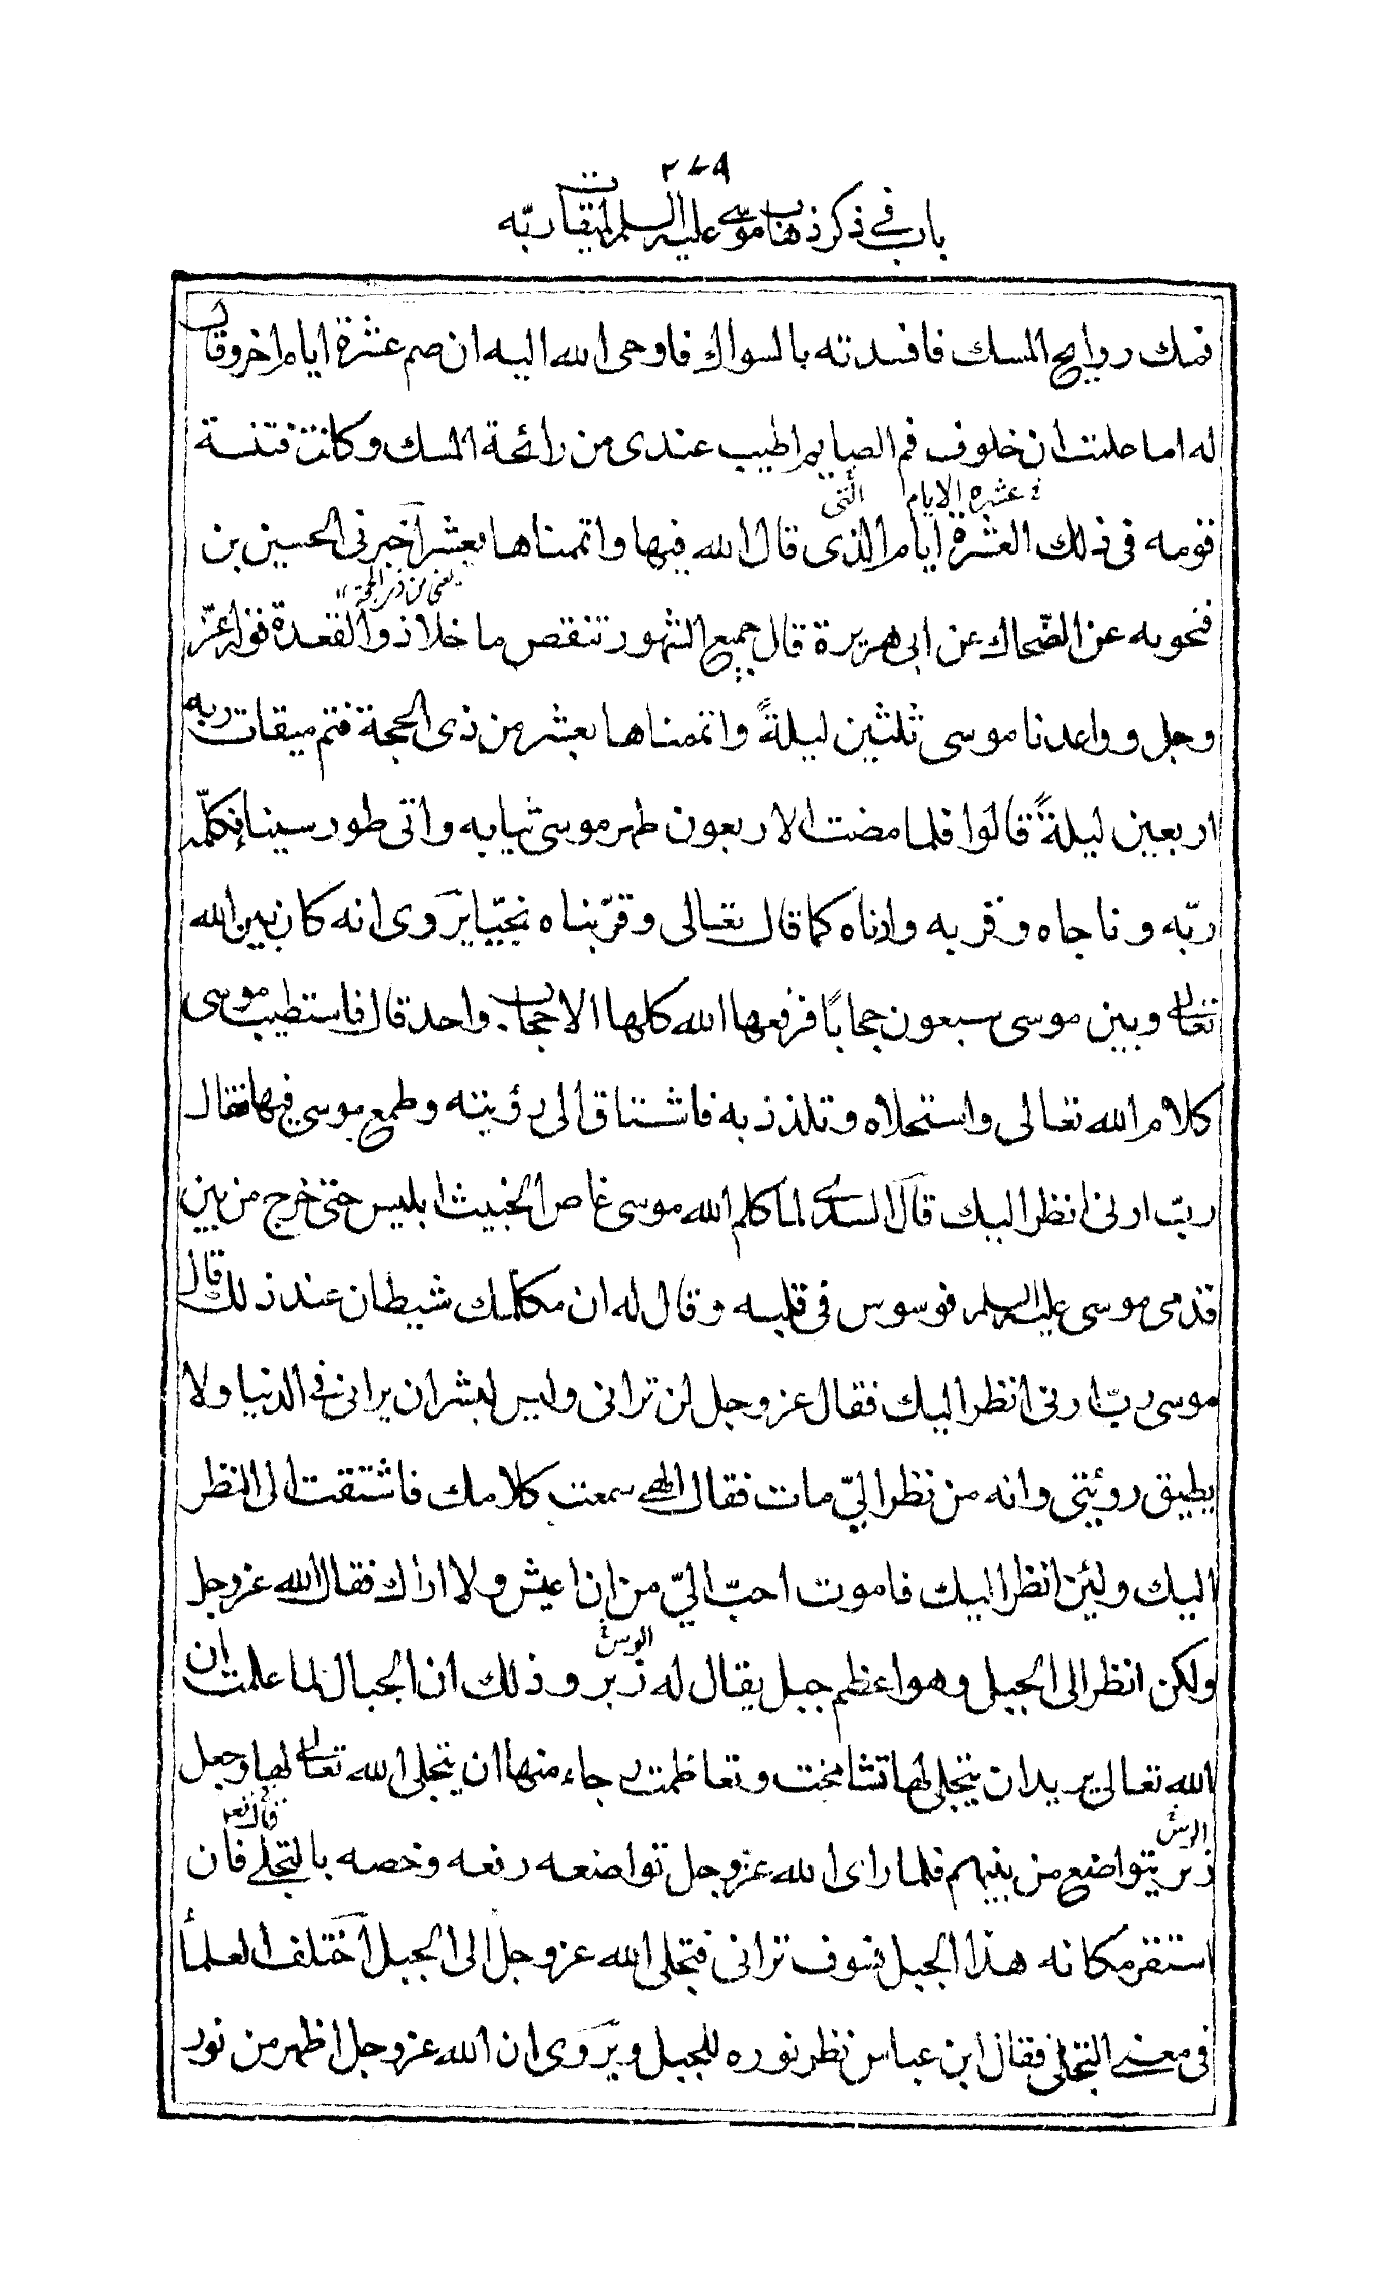 ٢٧٩
باب في ذكر ذهاب موسى عليه السلم لميقات ربّه
فمك روايح المسك فافسدته بالسواك فاوحى الله اليه ان صم عشرة ايام اخر وقال
له اما علمت ان خلوف فم الصايم اطيب عندى من رائحة المسك وكانت فتنة
عشره الايام التى
قومه فى ذلك العشرة ايام الذى قال الله فيها واتممناها بعشر اخبرنى الحسين بن
يعنى من ذى الحجة
فنحويه عن الضحاك عن ابى هريرة قال جميع الشهور تنقص ما خلا ذو القعدة لقوله عزّ
وجل وواعدنا موسى ثلثين ليلةً واتممناها بعشر من ذى الحجة فتم ميقات ربه
اربعين ليلةً قالوا فلما مضت الاربعون طهر موسى ثيابه واتى طور سينا فكلّمه
ربّه وناجاه وقربه وادناه كما قال تعالى وقرّبناه نجيّا يروى انه كان بين الله
تعالى وبين موسى سبعون حجابًا فرفعها الله كلها الا حجاب واحد قال فاستطيب موسى
كلام الله تعالى واستحلاه وتلذذ به فاشتاق الى رؤيته وطمع موسى فيها فقال
ربّ ارنى انظر اليك قال السدى لما كلم الله موسى غاص الخبيث ابليس حتى خرج من بين
قدمى موسى عليه السلم فوسوس فى قلبه وقال له ان مكلمك شيطان عند ذلك قال
موسى ربّ ارنى انظر اليك فقال عز وجل لن ترانى وليس لبشر ان يرانى فى الدنيا ولا
يطيق رويتى وانه من نظر اليّ مات فقال الهى سمعت كلامك فاشتقت الى النظر
اليك ولئن انظر اليك فاموت احبّ اليّ من ان اعيش ولا اراك فقال الله عز وجل
ولكن انظر الى الجبل وهو اعظم جبل يقال له زبر وذلك ان الجبال لما علمت ان
الله تعالى يريد ان يتجلى لها تشامخت وتعاظمت رجاء منها ان يتجلى الله تعالى لها وجعل
فقال نعم
زبر يتواضع من بينهم فلما راى الله عز وجل تواضعه رفعه وخصه بالتجلى فان
استقر مكانه هذا الجبل فسوف ترانى فتجلى الله عز وجل الى الجبل اختلف العلمأ
فى معنى التجلى فقال ابن عباس نظر نوره للجبل ويروى ان الله عز وجل اظهر من نور